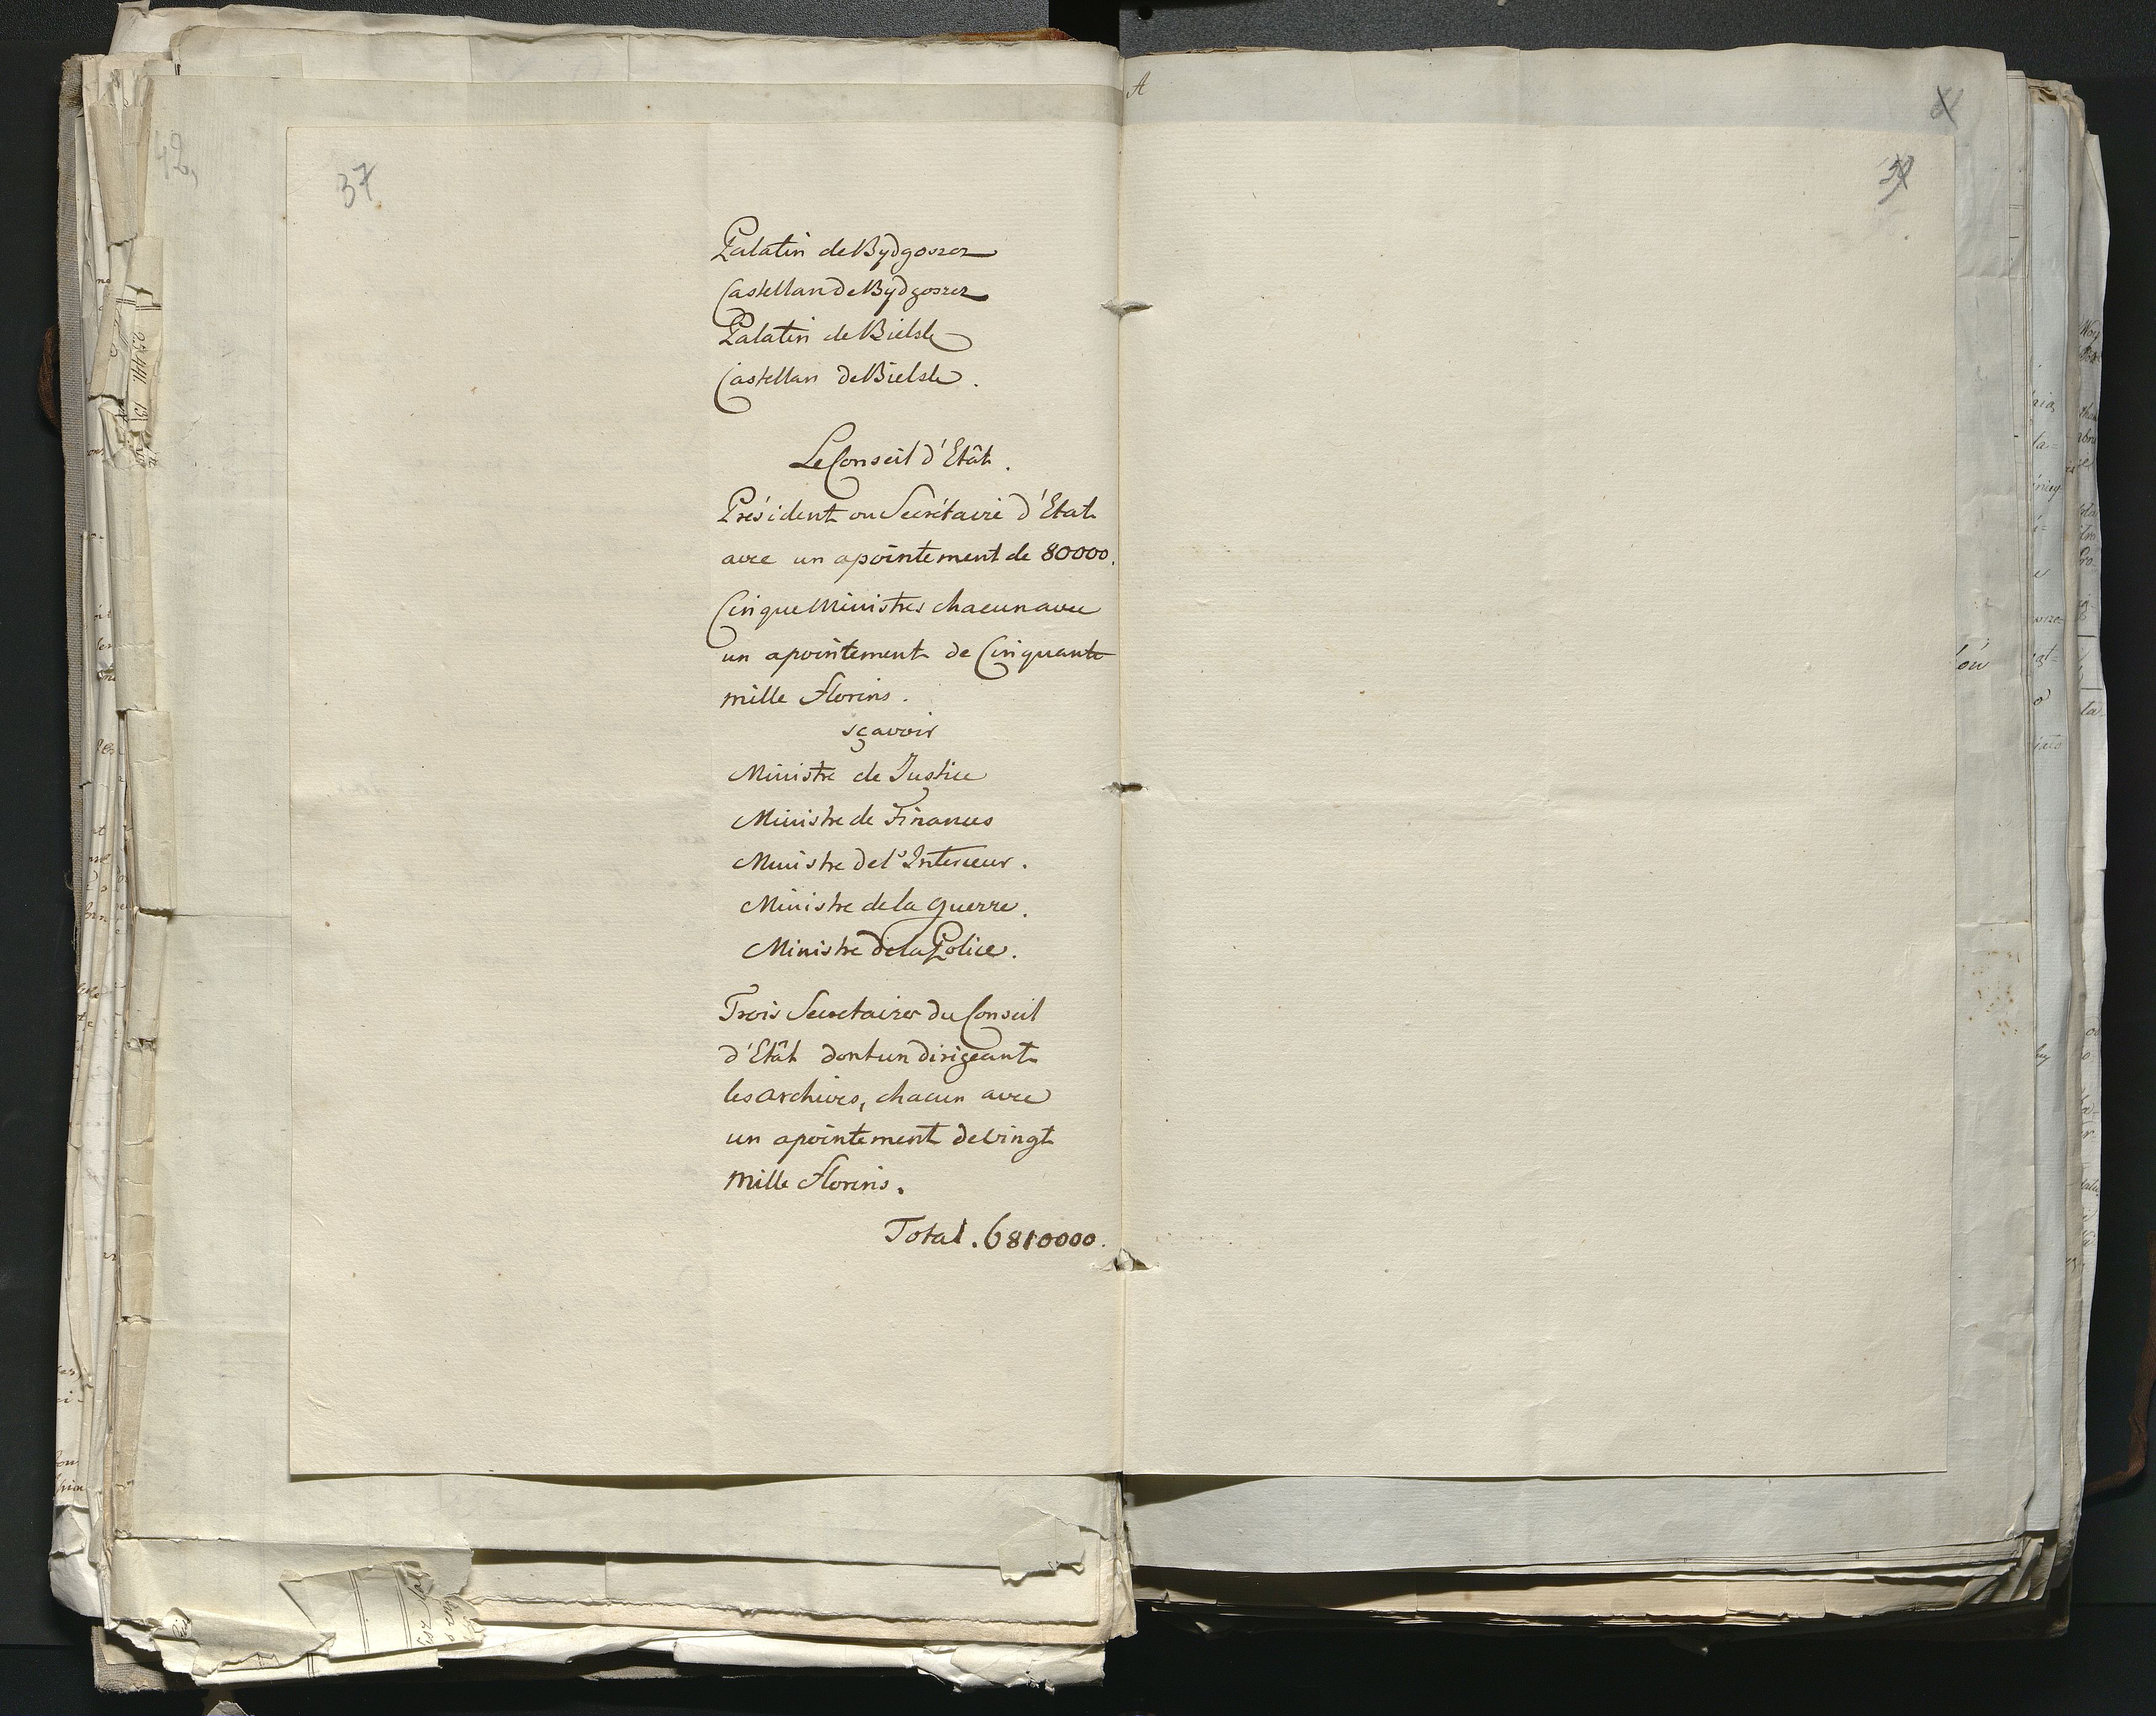 37
Palatin de Bydgoszcz
Castellan de Bydgoszcz
Palatin de Bielsk
Castellan de Bielsk.
Le Conseil d'Etât.
Président ou Secrétaire d'Etat
avec un apointement de 80000.
Cinque Ministres chacun avec
un apointement de Cinquante
mille Florins.
sçavoir
Ministre de Justice
Ministre de Finances
Ministre de l'Interieur.
Ministre de la Guerre.
Ministre de la Police.
Trois Secretaires du Conseil
d'Etât dont un dirigeant
les archives, chacun avec
un apointement de vingt
mille Florins.
Total. 6810000.